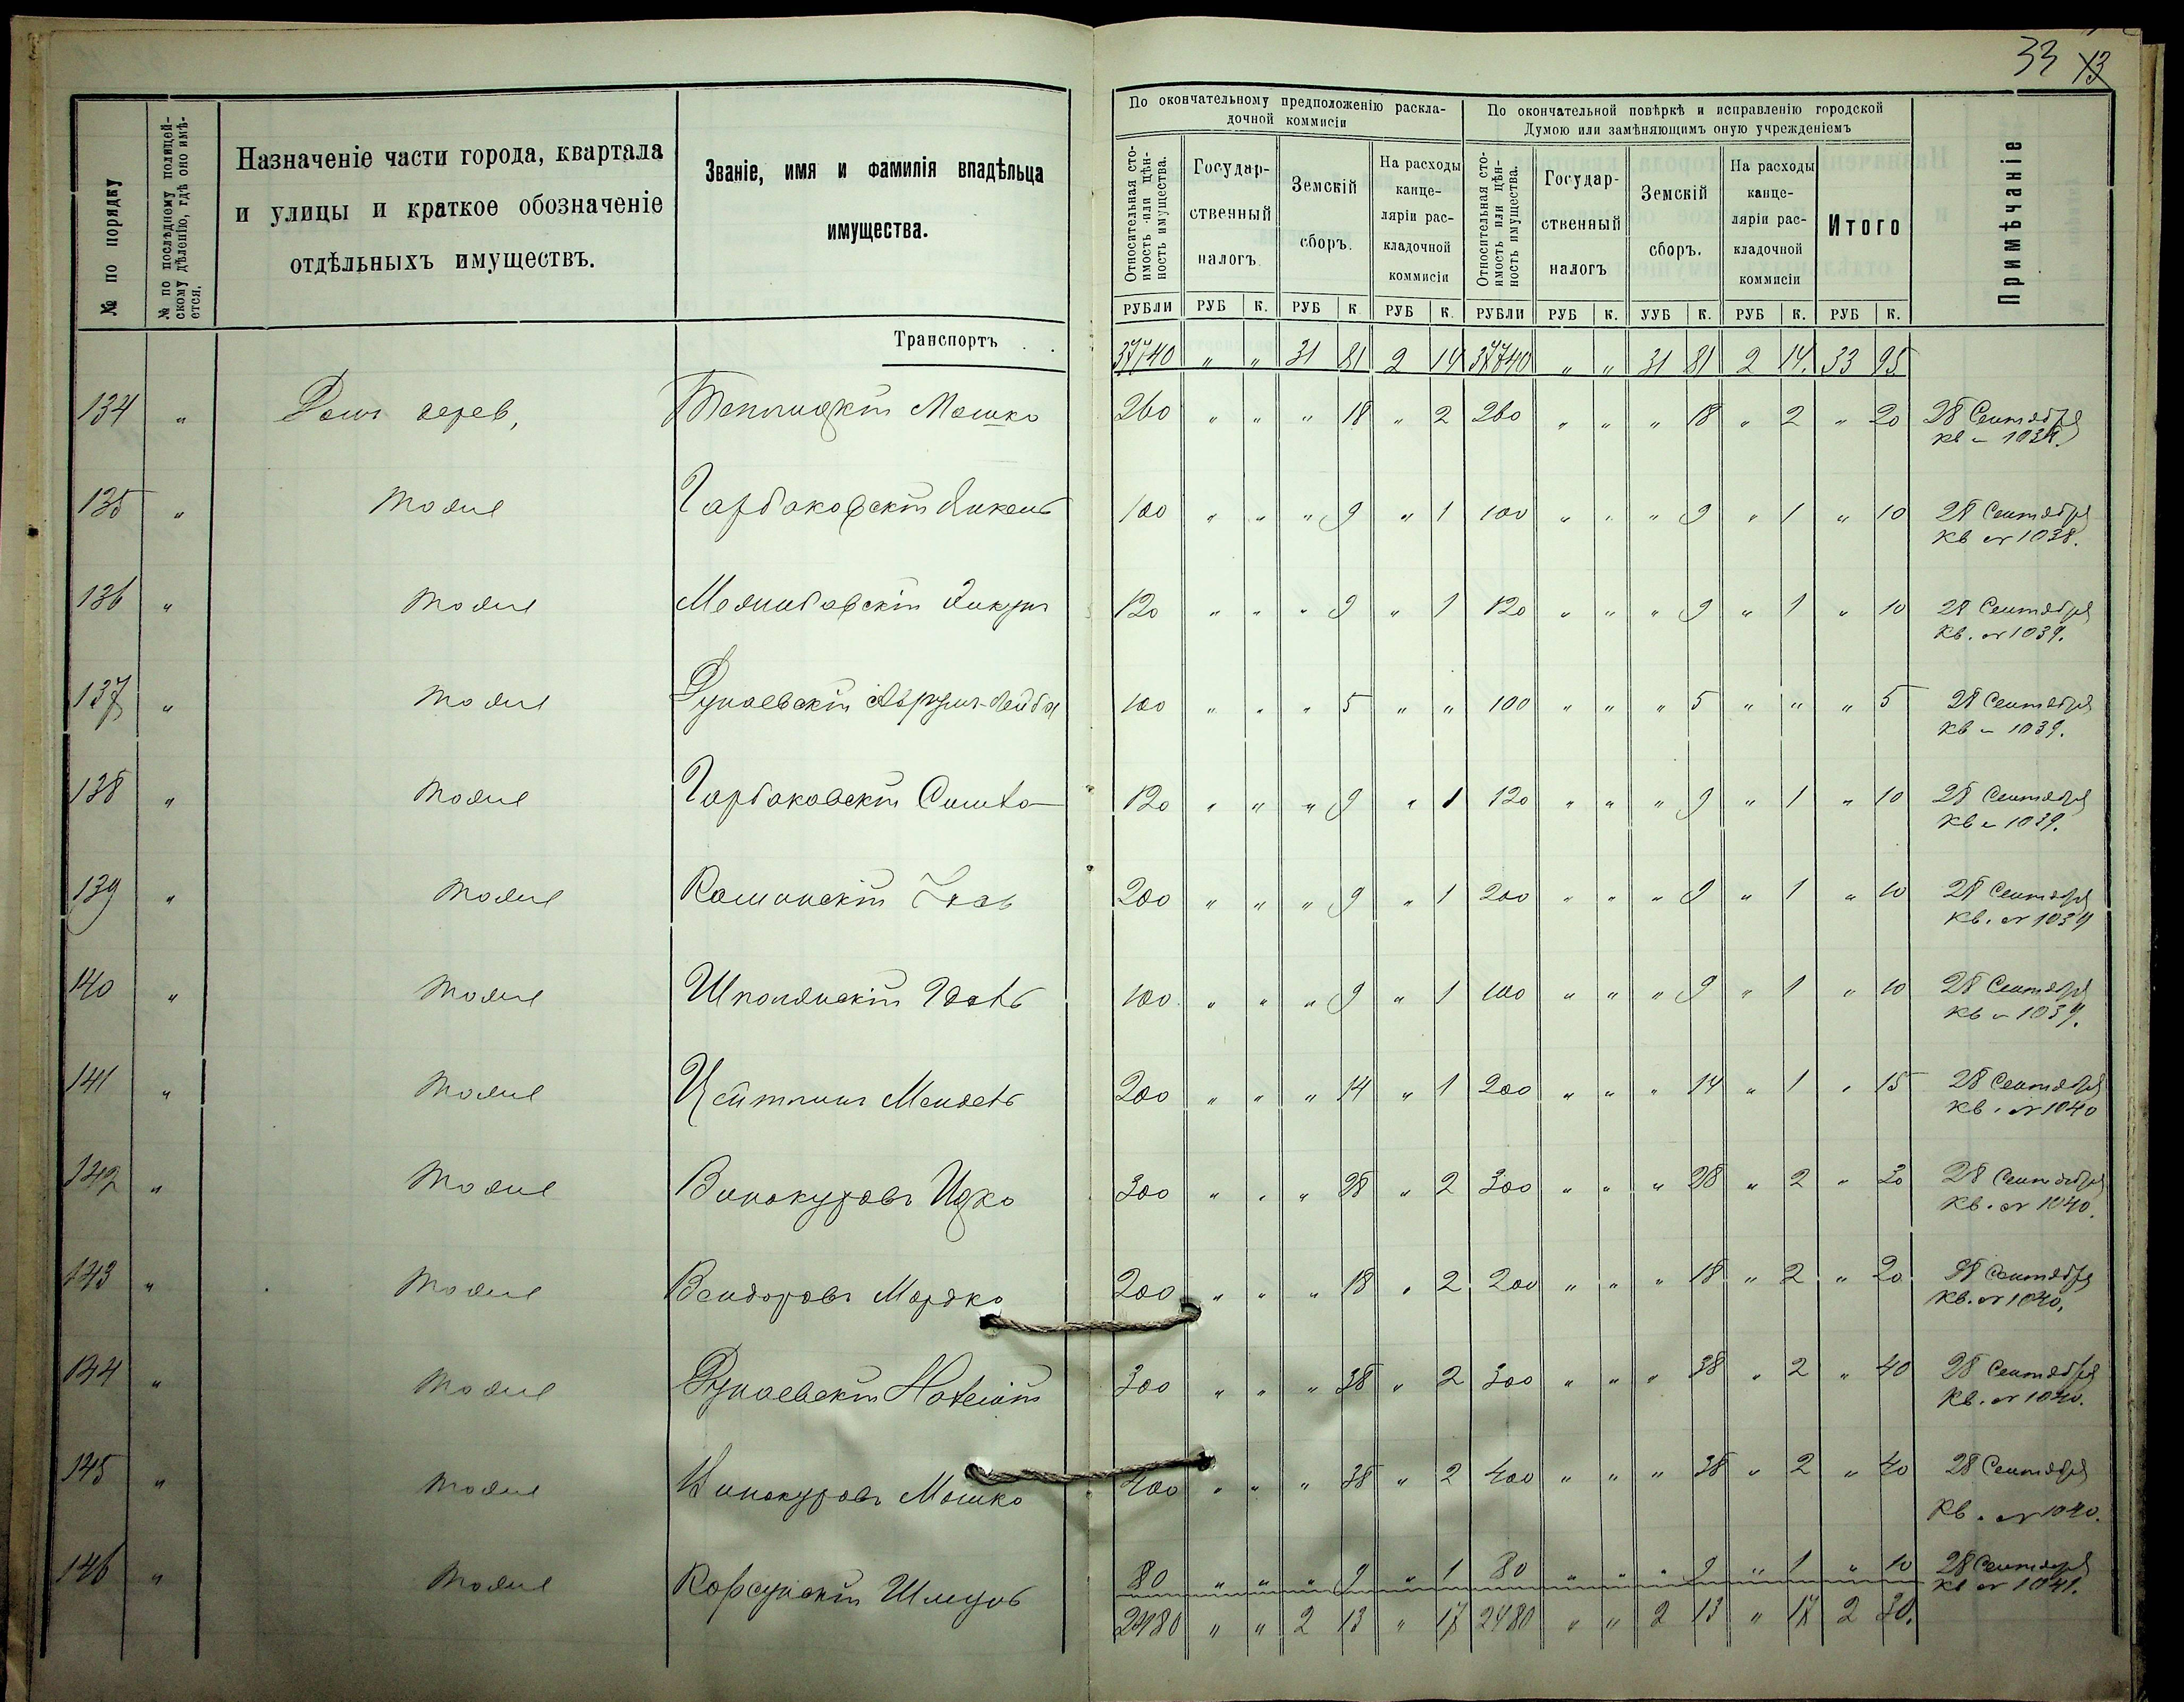 33 13
№ по порядку
№ по послѣдному полицей-
скому дѣленію, гдѣ оно имѣ-
ется.
Назначеніе части города, квартала
и улицы и краткое обозначеніе
отдѣльныхъ имуществъ.
Званіе, имя и фамилія впадѣльца
имущества.
По окончательному предположенію раскла-
дочной коммисіи
По окончательной повѣркѣ и исправленію городской
Думою или замѣняющимъ оную учрежденіемъ
Относительная сто-
имость или цѣн-
ность имущества.
Государ-
ственный
налогъ
Земскій
сборъ.
На расходы
канце-
ляріи рас-
кладочной
коммисіи
Относительная сто-
имость или цѣн-
ность имущества.
Государ-
ственный
налогъ
Земскій
сборъ.
На расходы
канце-
ляріи рас-
кладочной
коммисіи
Итого
Примѣчаніе
РУБЛИ РУБ К. РУБ К РУБ К. РУБЛИ РУБ К. УУБ К. РУБ К. РУБ К.
Транспортъ . . 37740 " " 31 81 2 14 37740 " " 31 81 2 14. 33 95
134 " Домъ дерев, Теплицкій Мошко 260 " " " 18 " 2 260 " " " 18 " 2 " 20 28 Сентября
кв " 1038.
135 " Тоже Гарбаковскій Янкель 100 " " " 9 " 1 100 " " " 9 " 1 " 10 28 Сентября
кв № 1038.
136 " Тоже 120 " " " 9 " 1 120 " " " 9 " 1 " 10 28 Сентября
кв. № 1039.
137 " Тоже Дунаевскій Аврумъ-Лейба 100 " " " 5 " " 100 " " " 5 " " " 5 28 Сентября
кв " 1039.
138 " Тоже Гарбаковскій 120 " " " 9 " 1 120 " " " 9 " 1 " 10 28 Сентября
кв " 1039.
139 " Тоже Рашанскій 200 " " " 9 " 1 200 " " " 9 " 1 " 10 28 Сентября
кв. № 1039
140 " Тоже Шполянскій 100 " " " 9 " 1 100 " " " 9 " 1 " 10 28 Сентября
кв " 1039.
141 " Тоже Цейтлинъ Мендель 200 " " " 14 " 1 200 " " " 14 " 1 " 15 28 Сентября
кв. № 1040
142 " Тоже Винокуровъ Ицко 300 " " " 28 " 2 300 " " " 28 " 2 " 30 28 Сентября
кв. № 1040.
143 " Тоже Вендоровъ Мордко 200 " " " 18 " 2 200 " " " 18 " 2 " 20 28 Сентября
кв. № 1040.
144 " Тоже Дунаевскій 300 " " " 38 " 2 300 " " " 38 " 2 " 40 28 Сентября
кв. № 1040.
145 " Тоже Винокуровъ Мошко 400 " " " 38 " 2 400 " " " 38 " 2 " 40 28 Сентября
кв. № 1040.
146 " Тоже Корсунскій Шмуль 80 " " " 9 " 1 80 " " " 9 " 1 " 10 28 Сентября
кв № 1041.
2480 " " 2 13 " 17 2480 " " 2 13 " 17 2 30.